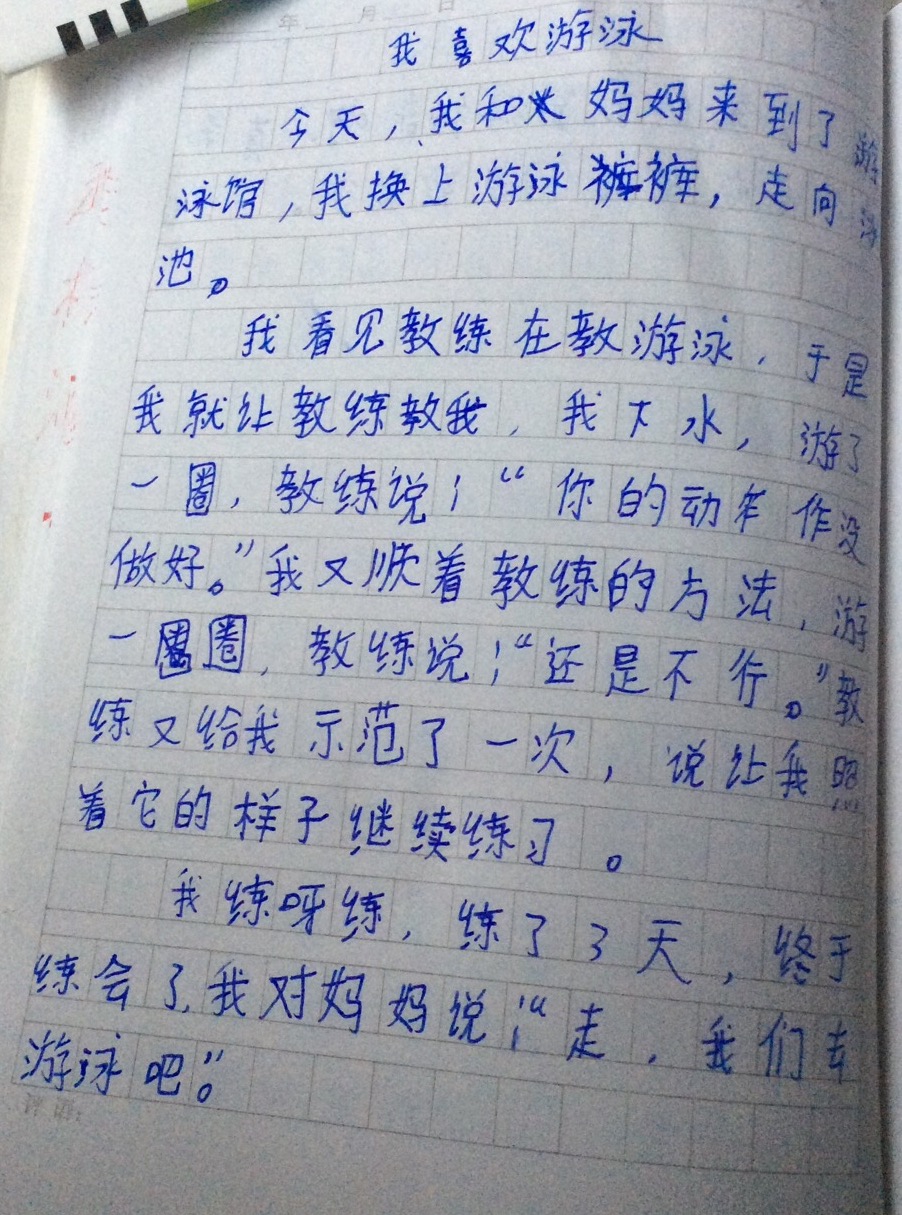 年 月 日
我喜欢游泳
今天，我和妈妈来到了游
泳馆，我换上游泳裤裤，走向泳
池。
我看见教练在教游泳，于是
我就让教练教我，我下水，游了
一圈，教练说；“你的动作作没
做好。”我又顺着教练的方法，游
一圈圈，教练说；“还是不行。”教
练又给我示范了一次，说让我照
着它的样子继续练习。
我练呀练，练了3天，终于
练会了，我对妈妈说；“走，我们去
游泳吧”。
评语：